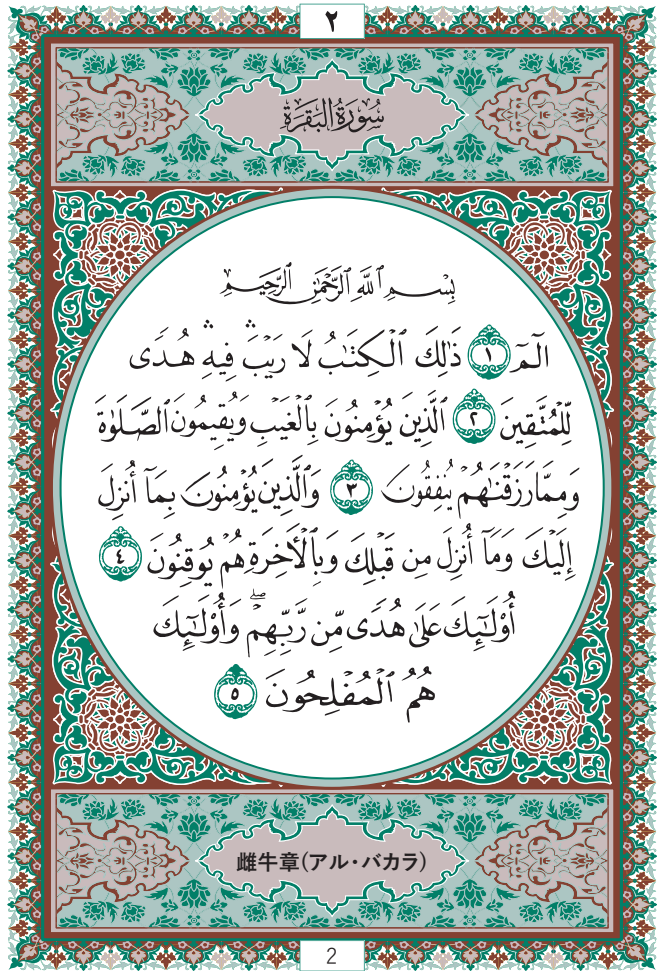 ٢
سُورَةُ البَقَرَةِ
بِسْمِ ٱللَّهِ ٱلرَّحْمَٰنِ ٱلرَّحِيمِ
الٓمٓ ١ ذَٰلِكَ ٱلْكِتَٰبُ لَا رَيْبَ ۛ فِيهِ ۛ هُدًى
لِّلْمُتَّقِينَ ٢ ٱلَّذِينَ يُؤْمِنُونَ بِٱلْغَيْبِ وَيُقِيمُونَ ٱلصَّلَوٰةَ
وَمِمَّا رَزَقْنَٰهُمْ يُنفِقُونَ ٣ وَٱلَّذِينَ يُؤْمِنُونَ بِمَآ أُنزِلَ
إِلَيْكَ وَمَآ أُنزِلَ مِن قَبْلِكَ وَبِٱلْأَخِرَةِ هُمْ يُوقِنُونَ ٤
أُوْلَٰٓئِكَ عَلَىٰ هُدًى مِّن رَّبِّهِمْ ۖ وَأُوْلَٰٓئِكَ
هُمُ ٱلْمُفْلِحُونَ ٥
雌牛章(アル・バカラ)
2